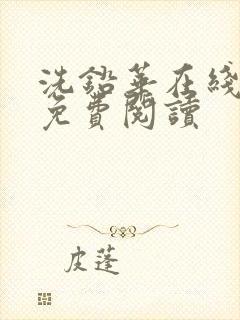 洗鉛華在綫
免費閱讀
皮蓬